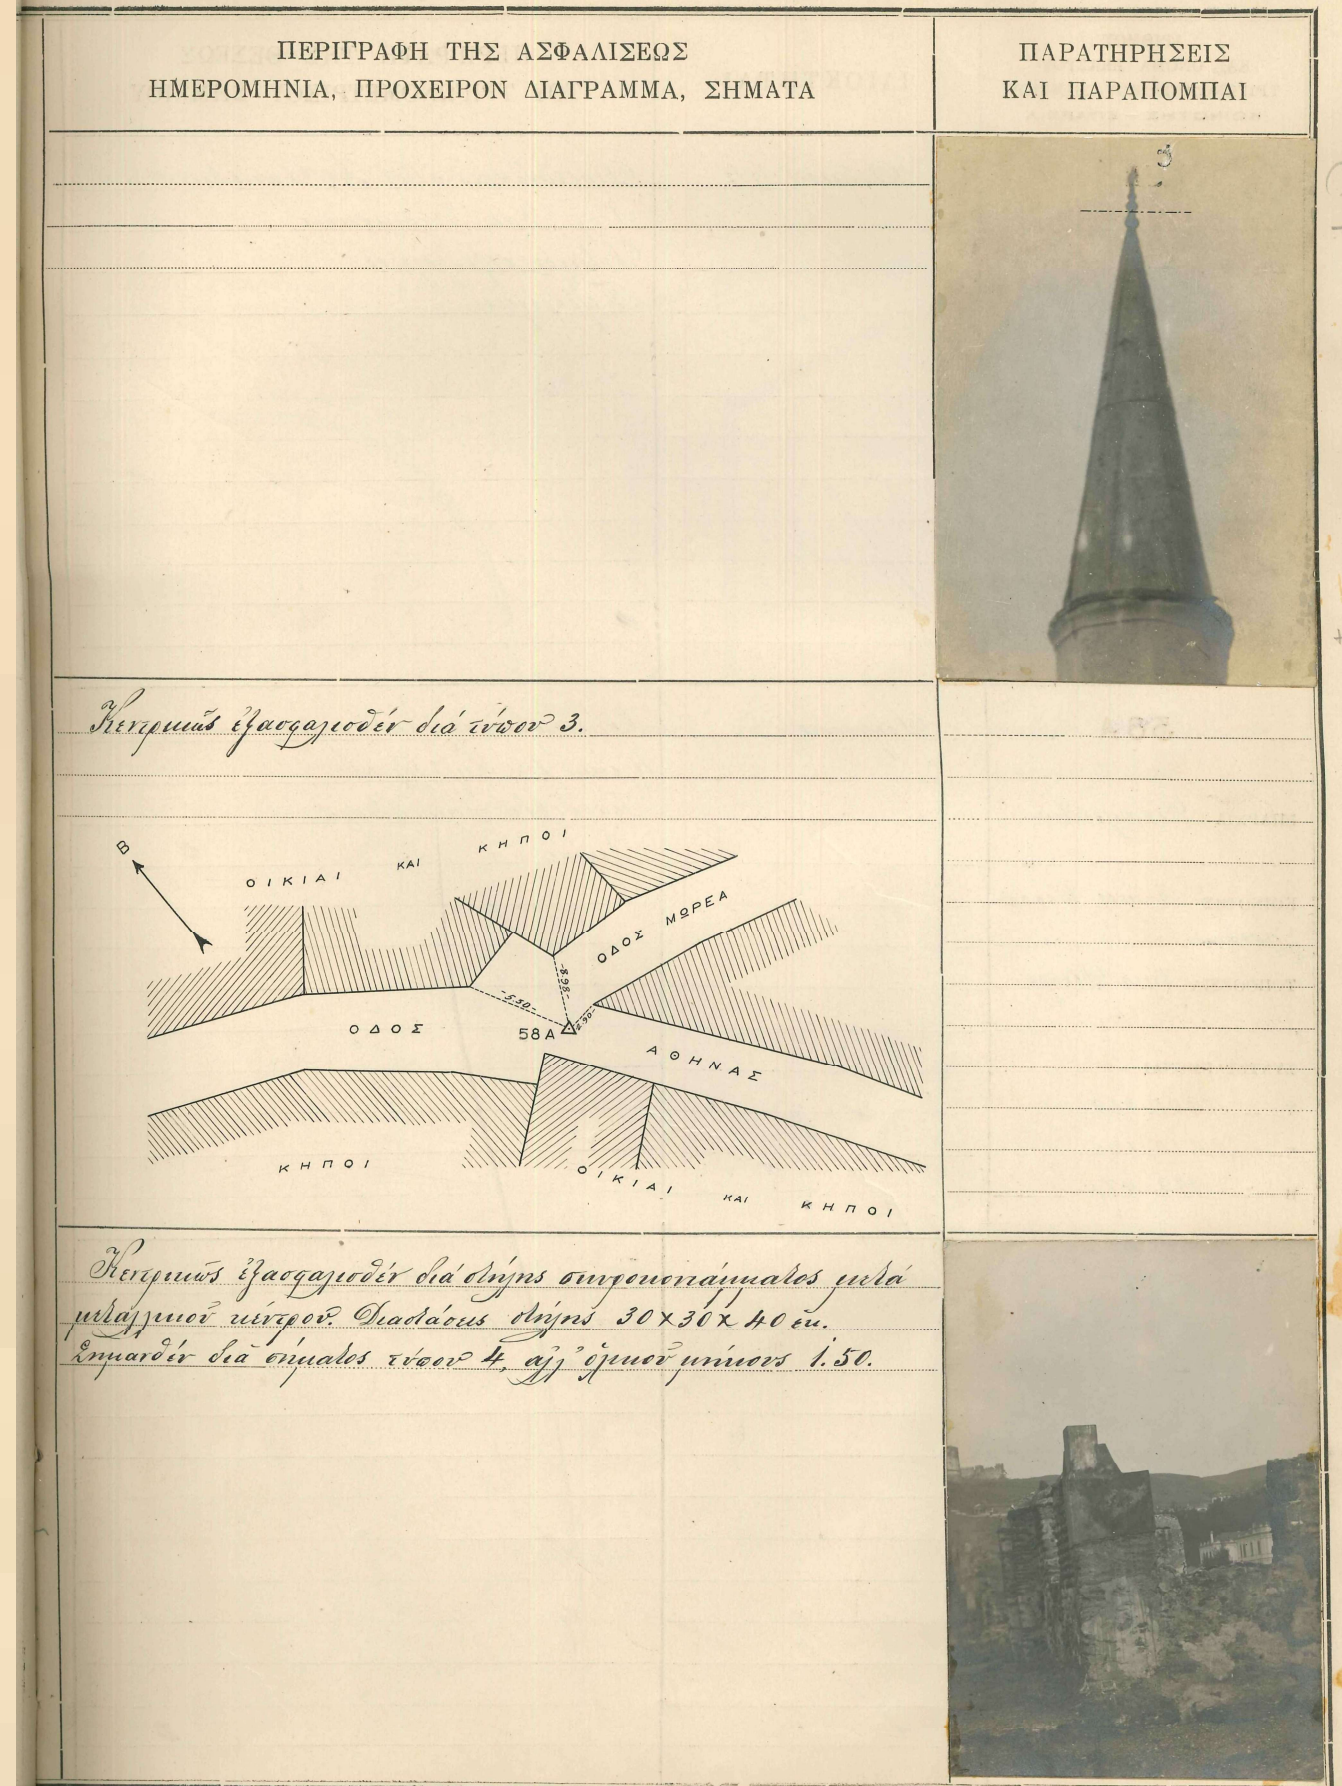 ΠΕΡΙΓΡΑΦΗ ΤΗΣ ΑΣΦΑΛΙΣΕΩΣ
ΗΜΕΡΟΜΗΝΙΑ, ΠΡΟΧΕΙΡΟΝ ΔΙΑΓΡΑΜΜΑ, ΣΗΜΑΤΑ
ΠΑΡΑΤΗΡΗΣΕΙΣ
ΚΑΙ ΠΑΡΑΠΟΜΠΑΙ
3
Κεντρικῶς ἐξασφαλισθέν διά τύπου 3.
Β
ΟΙΚΙΑΙ ΚΑΙ ΚΗΠΟΙ
ΟΔΟΣ ΜΩΡΕΑ
8.98
5.50
2.90
58Α
ΟΔΟΣ ΑΘΗΝΑΣ
ΚΗΠΟΙ
ΟΙΚΙΑΙ ΚΑΙ ΚΗΠΟΙ
Κεντρικῶς ἐξασφαλισθέν διά στήλης σιυροκονιάμματος μετά
μεταλλικοῦ κέντρου. Διαστάσεις στήλης 30 X 30 X 40 ἑκ.
Σημανθέν διά σήματος τύπου 4, ἀλλ' ὁλικοῦ μήκους 1.50.